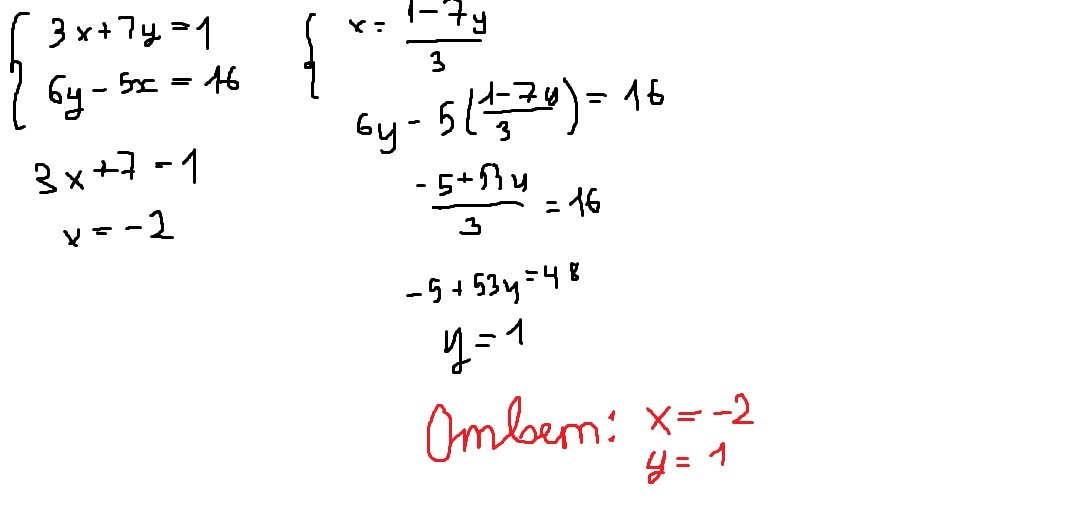 3x+7y=1
6y-5x=16
3x+7-1
x=-2
x=\frac{1-7y}{3}
6y-5(\frac{1-7y}{3})=16
\frac{-5+53y}{3}=16
-5+53y=48
y=1
Ответ: x=-2
y=1